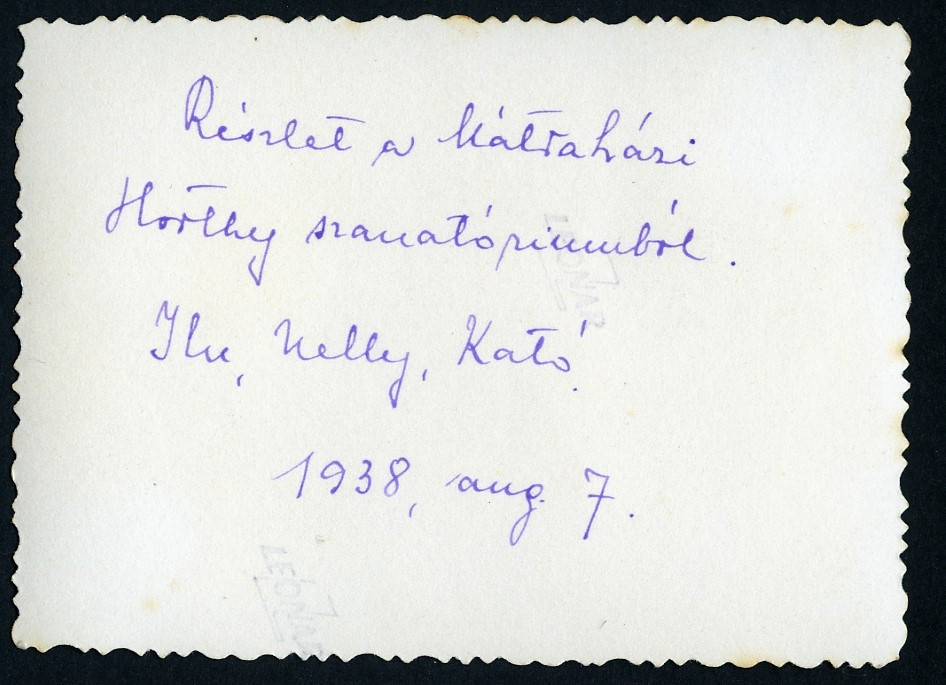 Részlet a Mátraházi
Horthy szanatóriumból.
Ilu, Nelly, Kató.
1938, aug. 7.
LEONAR
LEONAR